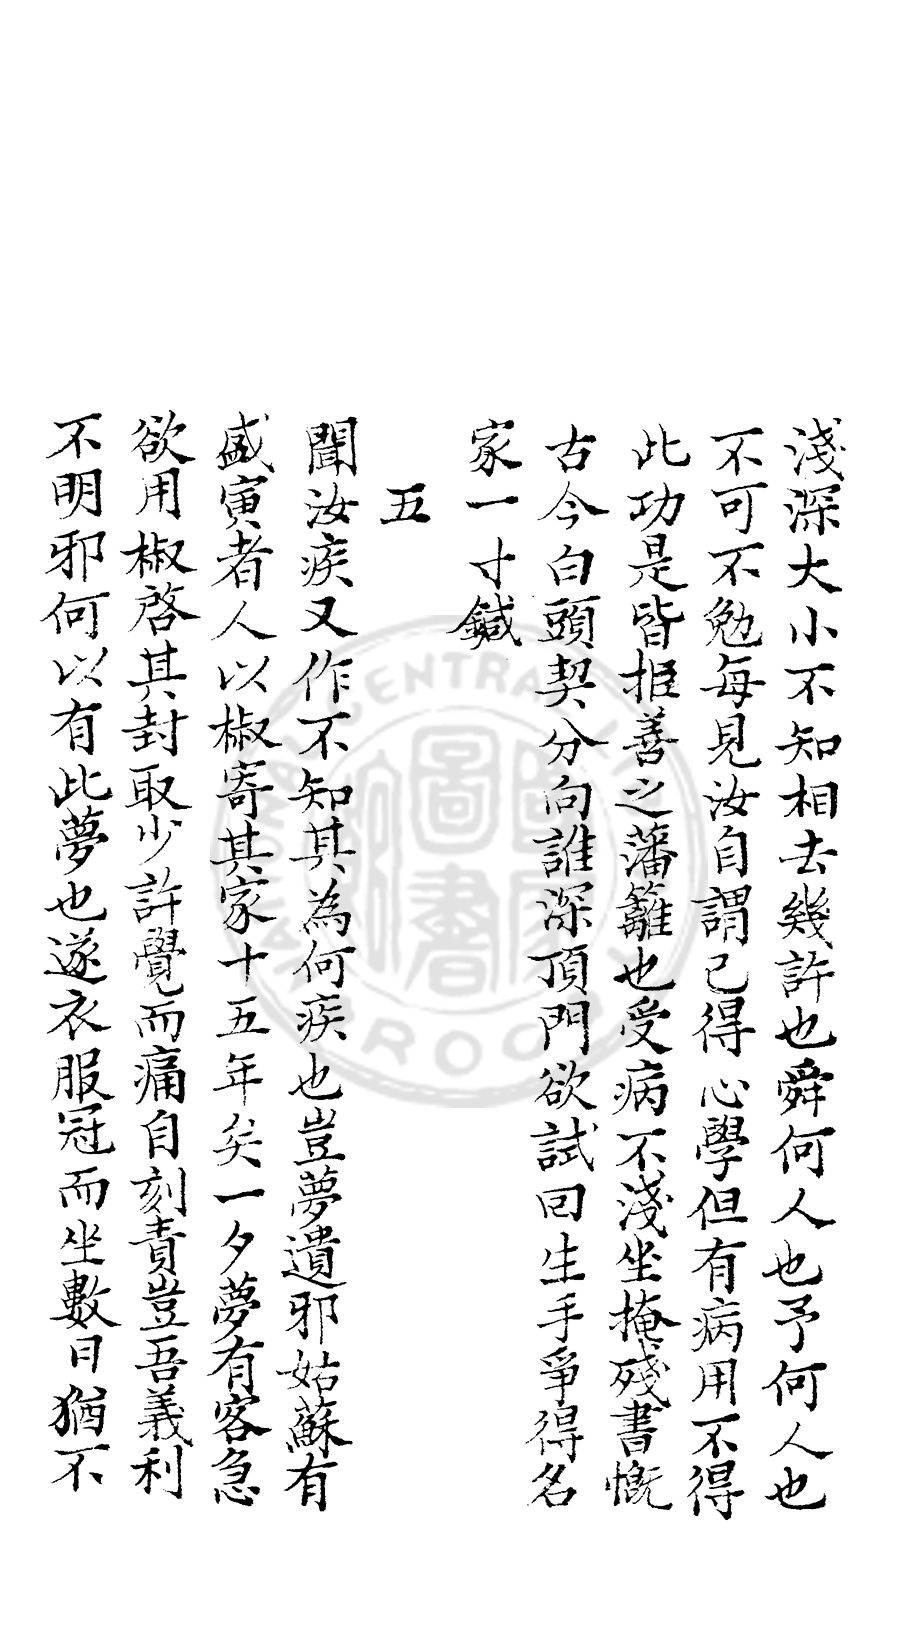 淺深大小不知相去幾許也舜何人也予何人也
不可不勉每見汝自謂已得心學但有病用不得
此功是皆拒善之藩籬也受病不淺坐掩殘書慨
古今白頭契分向誰深頂門欲試回生手爭得名
家一寸鍼
五
聞汝疾又作不知其為何疾也豈夢遺邪姑蘇有
盛寅者人以椒寄其家十五年矣一夕夢有客急
欲用椒啓其封取少許覺而痛自刻責豈吾義利
不明邪何以有此夢也遂衣服冠而坐數日猶不
NATIONAL CENTRAL LIBRARY
TAIWAN R.O.C.